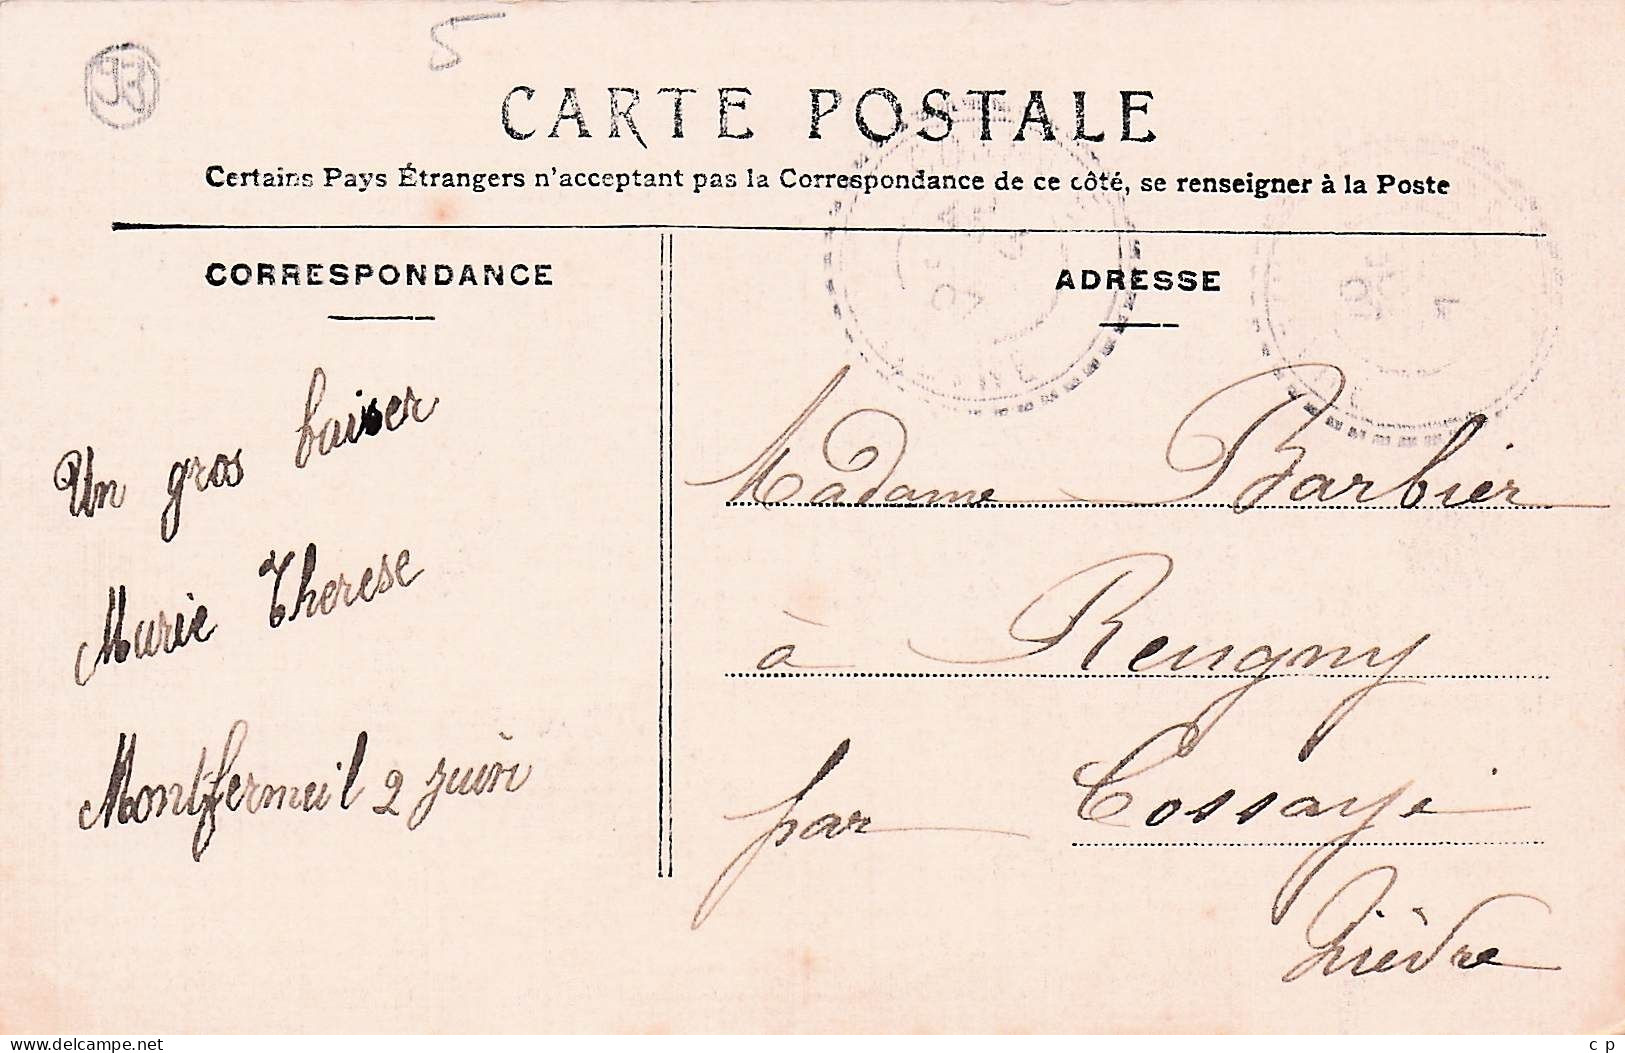 5
93
CARTE POSTALE
Certains Pays Étrangers n'acceptant pas la Correspondance de ce côté, se renseigner à la Poste
CORRESPONDANCE
Un gros baiser
Marie Therese
Montfermeil 2 juin
ADRESSE
Madame Barbier
à Reugny
par Cossaye
Nièvre
www.delcampe.net
c p